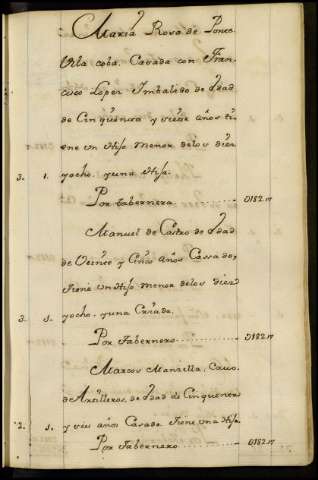 Maria Rosa de Ponte
Vila coba, Casada con Fran-
cisco Lopez Imbalido de Edad
de Cinquenta y años ti-
ene un Hijo menor de los diez
3. 1. yocho, y una Hija.
Por tabernera 0182.17
Manuel de Castro de Edad
de Veinte y Cinco años Casado,
tiene un Hijo menor de los diez
3. 1. yocho, y una Criada.
Por Tabernero 0182.17
Marcos Mansilla, Cavo
de Artilleros, de Edad de Cinquenta
2. 1. y seis años Casado tiene una Hija.
Por Tabernero 0182.17